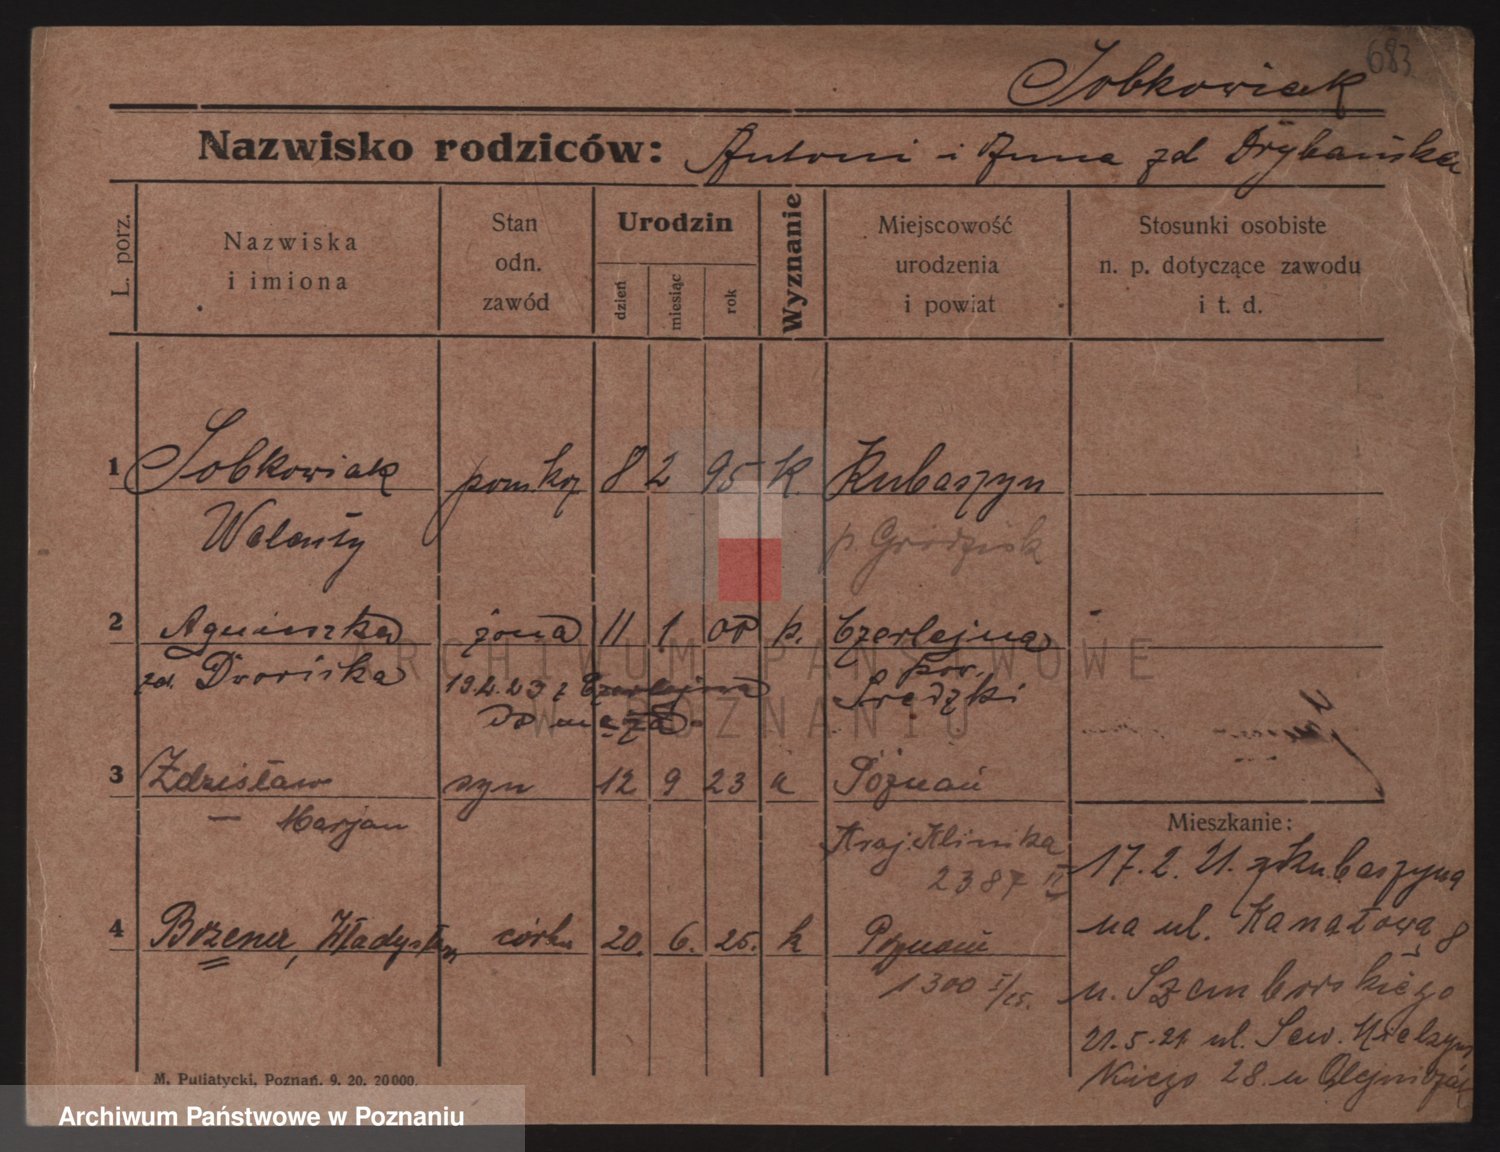 683
Sobkowiak
Nazwisko rodziców: Antoni i Anna zd Drybańska
L. porz.
Nazwiska
i imiona
Stan
odn.
zawód
Urodzin
dzień
miesiąc
rok
Wyznanie
Miejscowość
urodzenia
i powiat
Stosunki osobiste
n. p. dotyczące zawodu
i t. d.
1 Sobkowiak pom. koz 8 2 95 k. Kubaszyn
Walenty p. Grodzisk
2 Agnieszka żona 11 1 00 k. Czerlejno
zd. Dworiska 19.2.23 z Czerlejna pow. Sredzki
do męża
3 Zdzisław syn 12 9 23 k Poznań
— Marjan Kraj. Klinika
2387 II
4 Bożena, Władysława córka 20. 6. 25. k Poznań
1300 I/25.
Mieszkanie:
17.2.21. z Kubaszyna
na ul. Kanałową 8
u. Szemborskiego
21.5.21 ul. Sew. Mielzyń
skiego 28 u Olejniczak
M. Putiatycki, Poznań. 9. 20. 20000.
ARCHIWUM PAŃSTWOWE
W POZNANIU
Archiwum Państwowe w Poznaniu